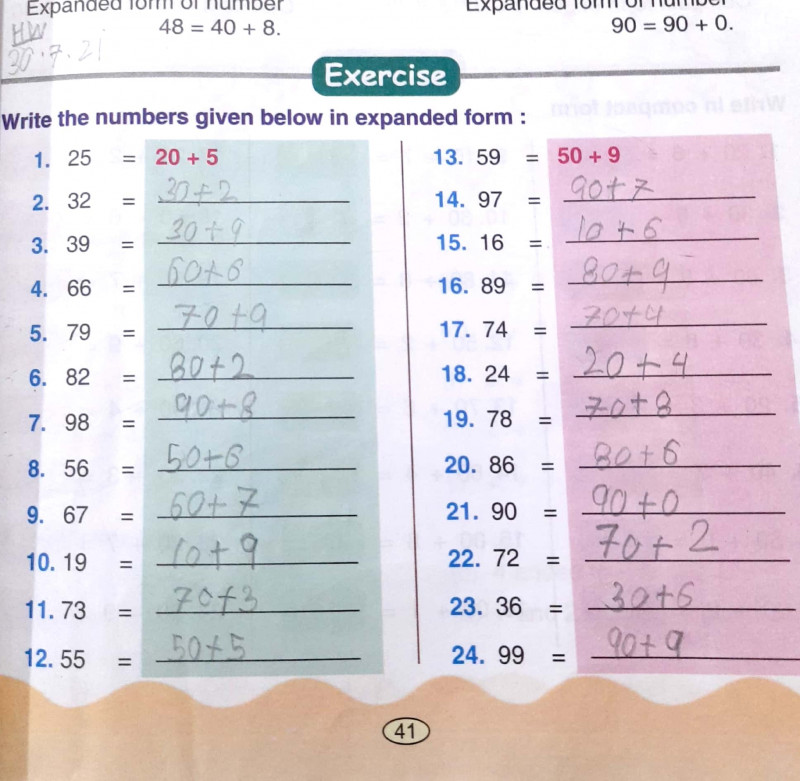 Expanded form of number
48 = 40 + 8.
Expanded form of number
90 = 90 + 0.
HW
30.7.21
Exercise
Write the numbers given below in expanded form :
1. 25 = 20 + 5
2. 32 = 30+2
3. 39 = 30+9
4. 66 = 60+6
5. 79 = 70+9
6. 82 = 80+2
7. 98 = 90+8
8. 56 = 50+6
9. 67 = 60+7
10. 19 = 10+9
11. 73 = 70+3
12. 55 = 50+5
13. 59 = 50 + 9
14. 97 = 90+7
15. 16 = 10+6
16. 89 = 80+9
17. 74 = 70+4
18. 24 = 20+4
19. 78 = 70+8
20. 86 = 80+6
21. 90 = 90+0
22. 72 = 70+2
23. 36 = 30+6
24. 99 = 90+9
41